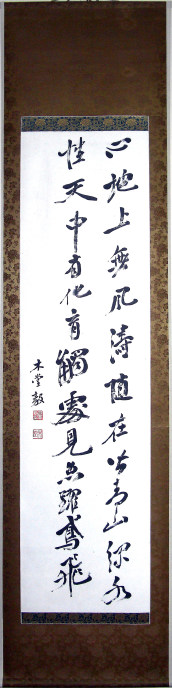 心地上無風濤随在皆青山緑水
性天中有化育觸處見魚躍鳶飛
木堂毅